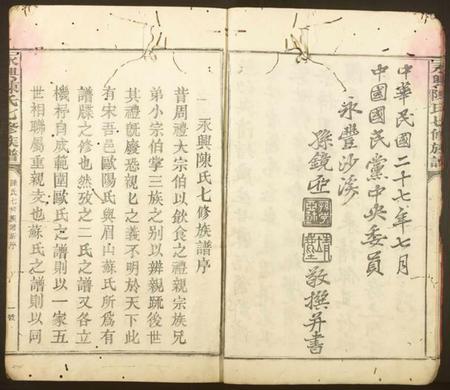 中華民國二十七年七月
中國國民黨中央委員
永豐沙溪
孫鏡亞
敬撰并書
永興陳氏七修族譜序
昔周禮大宗伯以飲食之禮親宗族兄
弟小宗伯掌三族之別以辨親疏後世
其禮既廢恐親親之義不明於天下此
有宋吾邑歐陽氏與眉山蘇氏所爲有
譜牒之修也然攷之二氏之譜又各立
機杼自成範圍歐氏之譜則以一家五
世相聯屬重親支也蘇氏之譜則以同
永興陳氏七修族譜
陳氏七修族譜新序
一號
永興陳氏七修族譜